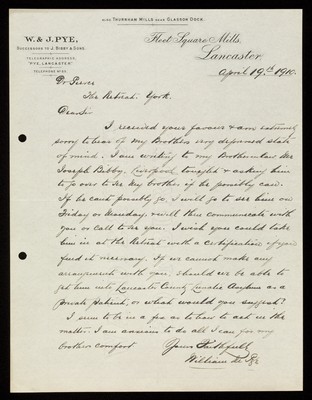 ALSO THURNHAM MILLS NEAR GLASSON DOCK.
W. & J. PYE,
SUCCESSORS TO J. BIBBY & SONS.
TELEGRAPHIC ADDRESS,
"PYE, LANCASTER."
TELEPHONE Nº 63.
Fleet Square Mills,
Lancaster,
April 19th 1910.
Dr Pierce
The Retreat. York.
Dear Sir
I received your favour & am extremely
sorry to hear of my Brothers very depressed state
of mind. I am writing to my Brother in law Mr
Joseph Bibby, Liverpool tonight & asking him
to go over to see my brother if he possibly can.
If he cant possibly go, I will go to see him on
Friday or Monday, & will then communicate with
you or call to see you. I wish you could take
him in at the Retreat with a certification if you
find it necessary. If we cannot make any
arrangements with you, should we be able to
get him into Lancaster County Lunatic Asylum as a
private patient, or what would you suggest?
I seem to be in a fog as to how to act in the
matter. I am anxious to do all I can for my
brothers comfort
Yours Faithfully
William H. Pye